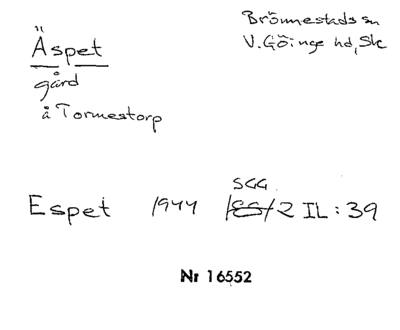 Äspet
gård
å Tormestorp
Brönnestads sn
V. Göinge hd, Sk
SGG
Espet 1944 2 IL : 39
Nr 16552